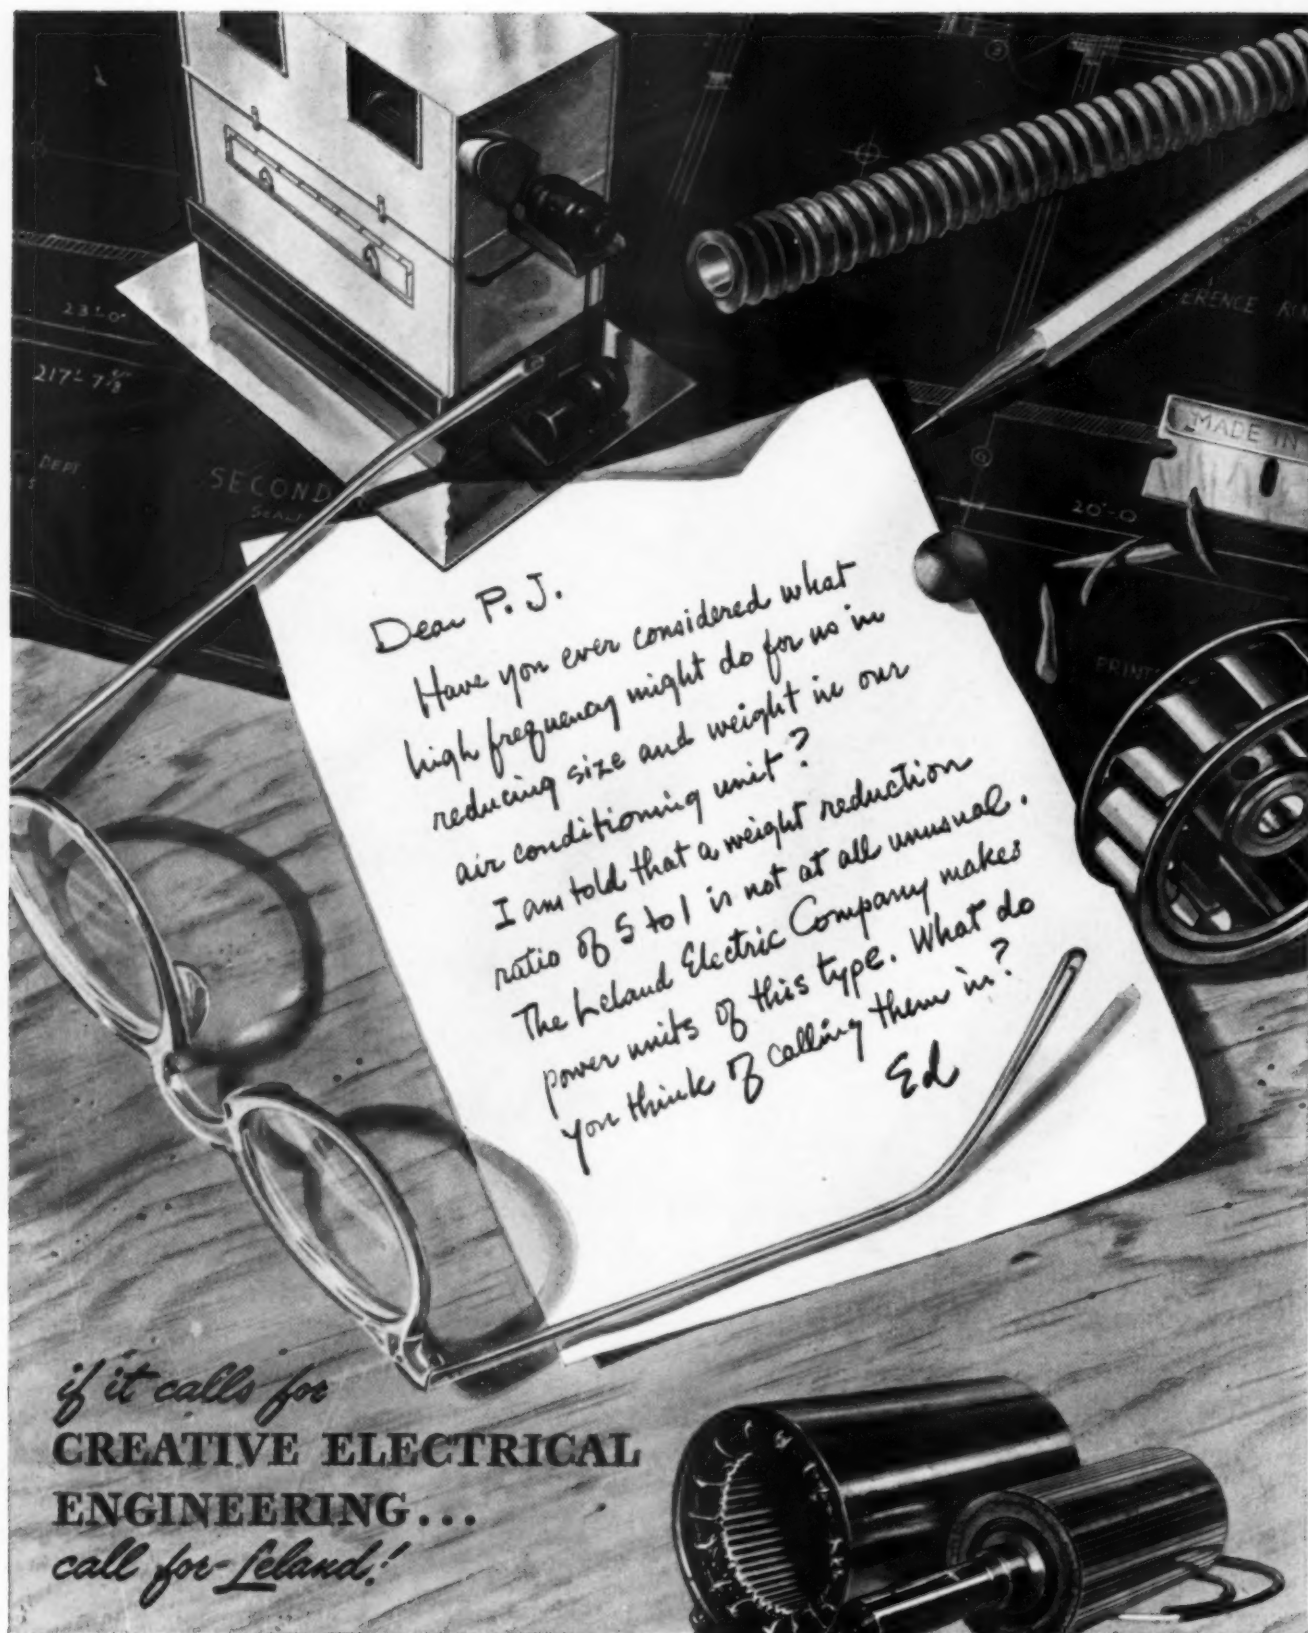 23'-0"
217'-7
DEPT
SECOND
ERENCE
MADE IN
20'-0
PRINT
Dear P. J.
Have you ever considered what
high frequency might do for us in
reducing size and weight in our
air conditioning unit?
I am told that a weight reduction
ratio of 5 to 1 is not at all unusual.
The Leland Electric Company makes
power units of this type. What do
you think of calling them in?
Ed
if it calls for
CREATIVE ELECTRICAL
ENGINEERING...
call for-Leland!